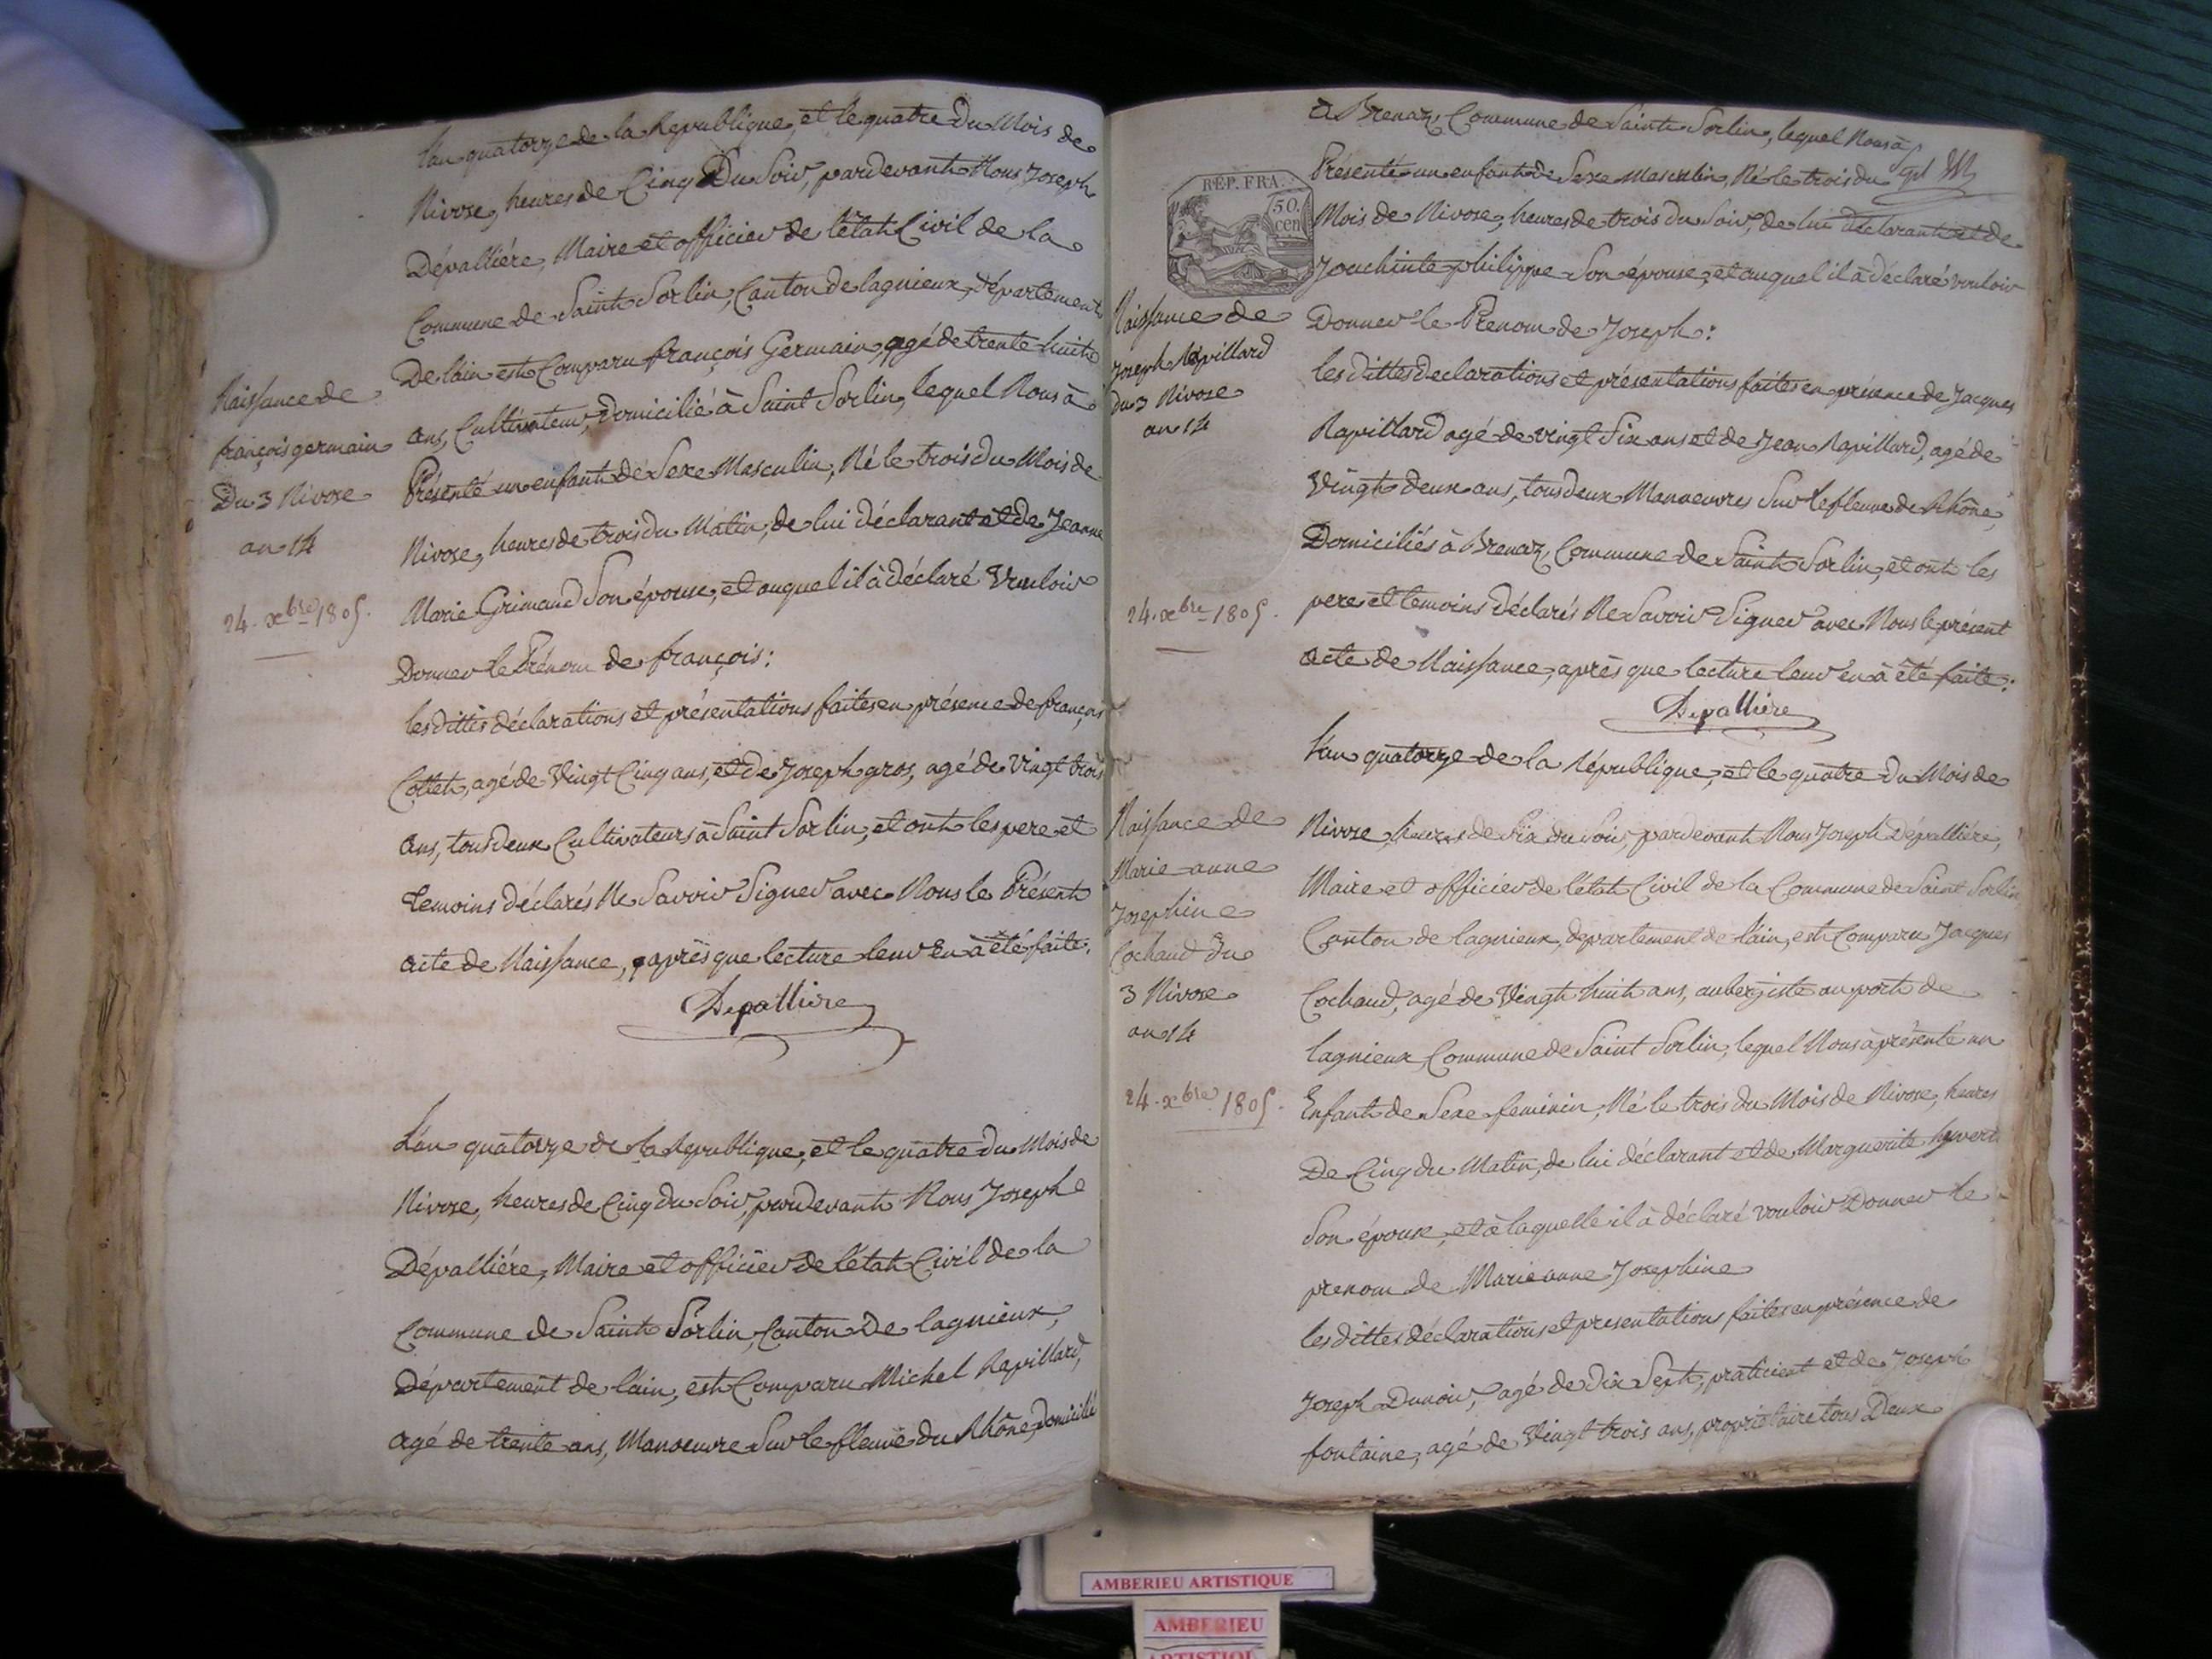 L'an quatorze de la Republique, et le quatre du Mois de
Nivose, heures de Cinq Du Soir, pardevant Nous Joseph
Dépalliére, Maire et officier de l'état Civil de la
Commune de Saint Sorlin, Canton de lagnieux, département
De l'ain est Comparu françois Germain, agé de trente huit
ans, Cultivateur, domicilié à Saint Sorlin, lequel Nous à
Présenté un enfant de Sexe Masculin, Né le trois du Mois de
Nivose, heures de trois du Matin, de lui déclarant et de Jeanne
Marie Grimaud Son épouse, et auquel il à déclaré Vouloir
Donner le Prénom de françois:
les dittes déclarations et présentations faites en présence de françois
Collet, agé de Vingt Cinq ans, et de Joseph gros, agé de Vingt trois
ans, tous deux Cultivateurs à Saint Sorlin, et ont les pere et
temoins déclarés Ne Savoir Signer avec Nous le Présent
acte de Naissance, après que lecture leur En à été faite.
Depalliere
Naissance de
françois germain
Du 3 Nivose
an 14
24. xbre 1805.
L'an quatorze de la Republique, et le quatre du Mois de
Nivose, heures de Cinq du Soir, pardevant Nous Joseph
Dépalliére, Maire et officier de l'état Civil de la
Commune de Saint Sorlin, Canton de lagnieux,
Département de l'ain, est Comparu Michel Rapillard,
agé de trente ans, Manoeuvre Sur le fleuve du Rhône, Domicilié
à Brenaz, Commune de Saint Sorlin, lequel Nous à
Présenté un enfant de Sexe Masculin, Né le trois du
Mois de Nivose, heures de trois du Soir, de lui déclarant et de
Jouchinte philippe Son épouse, et auquel il à déclaré vouloir
Donner le Prenom de Joseph:
les dittes declarations et présentations faites en présence de Jacques
Rapillard agé de vingt Six ans et de Jean Rapillard, agé de
Vingt deux ans, tous deux Manoeuvres Sur le fleuve de Rhône,
Domiciliés à Brenaz, Commune de Saint Sorlin, et ont les
peres et temoins déclarés Ne Savoir Signer avec Nous le présent
acte de Naissance, après que lecture leur en à été faite:
Depalliere
RÉP. FRA.
50.
cen
Naissance de
Joseph Rapillard
Du 3 Nivose
an 14
24. xbre 1805.
L'an quatorze de la République, et le quatre du Mois de
Nivose, heures de Six du Soir, pardevant Nous Joseph Dépalliére,
Maire et officier de l'état Civil de la Commune de Saint Sorlin
Canton de lagnieux, departement de l'ain, est Comparu Jacques
Cochaud, agé de Vingt huit ans, aubergiste au port de
lagnieux, Commune de Saint Sorlin, lequel Nous à présenté un
Enfant de Sexe feminin, Né le trois du Mois de Nivose, heures
De Cinq du Matin, de lui déclarant et de Marguerite hyvert
Son épouse, et à laquelle il à déclaré vouloir Donner le
prenom de Marie anne Josephine
les dittes déclarations et presentations faites en présence de
Joseph Dunoir, agé de dix Sept, praticient et de Joseph
fontaine, agé de Vingt trois ans, proprietaire tous Deux
Naissance de
Marie anne
Josephine
Cochaud du
3 Nivose
an 14
24. xbre 1805.
AMBERIEU ARTISTIQUE
AMBERIEU
ARTISTIQUE